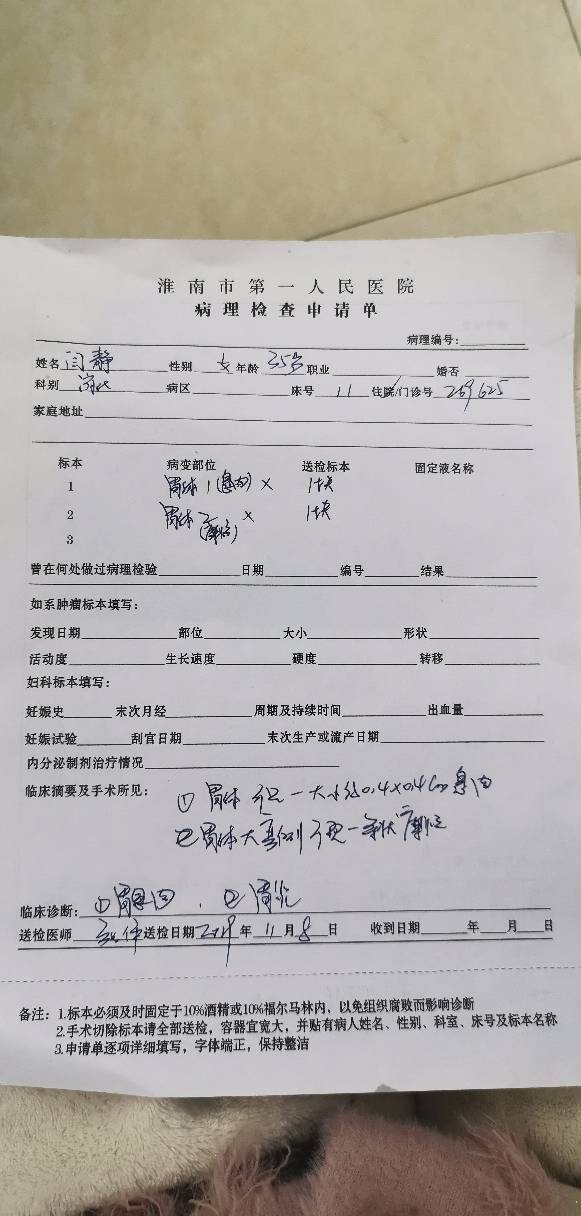 淮南市第一人民医院
病理检查申请单
病理编号:
姓名 闫静 性别 女 年龄 35岁 职业 婚否
科别 消化 病区 床号 11 住院/门诊号 259625
家庭地址
标本 病变部位 送检标本 固定液名称
1 胃体1(息肉)× 1块
2 胃体 × 1块
3
曾在何处做过病理检验 日期 编号 结果
如系肿瘤标本填写:
发现日期 部位 大小 形状
活动度 生长速度 硬度 转移
妇科标本填写:
妊娠史 末次月经 周期及持续时间 出血量
妊娠试验 刮宫日期 末次生产或流产日期
内分泌制剂治疗情况
临床摘要及手术所见: ① 胃体 可见一大小约0.4×0.4cm息肉
② 胃体大弯侧可见一条状
临床诊断: ①胃息肉, ②胃炎
送检医师 送检日期 2019 年 11 月 8 日 收到日期 年 月 日
备注: 1.标本必须及时固定于10%酒精或10%福尔马林内, 以免组织腐败而影响诊断
2.手术切除标本请全部送检, 容器宜宽大, 并贴有病人姓名、性别、科室、床号及标本名称
3.申请单逐项详细填写, 字体端正, 保持整洁